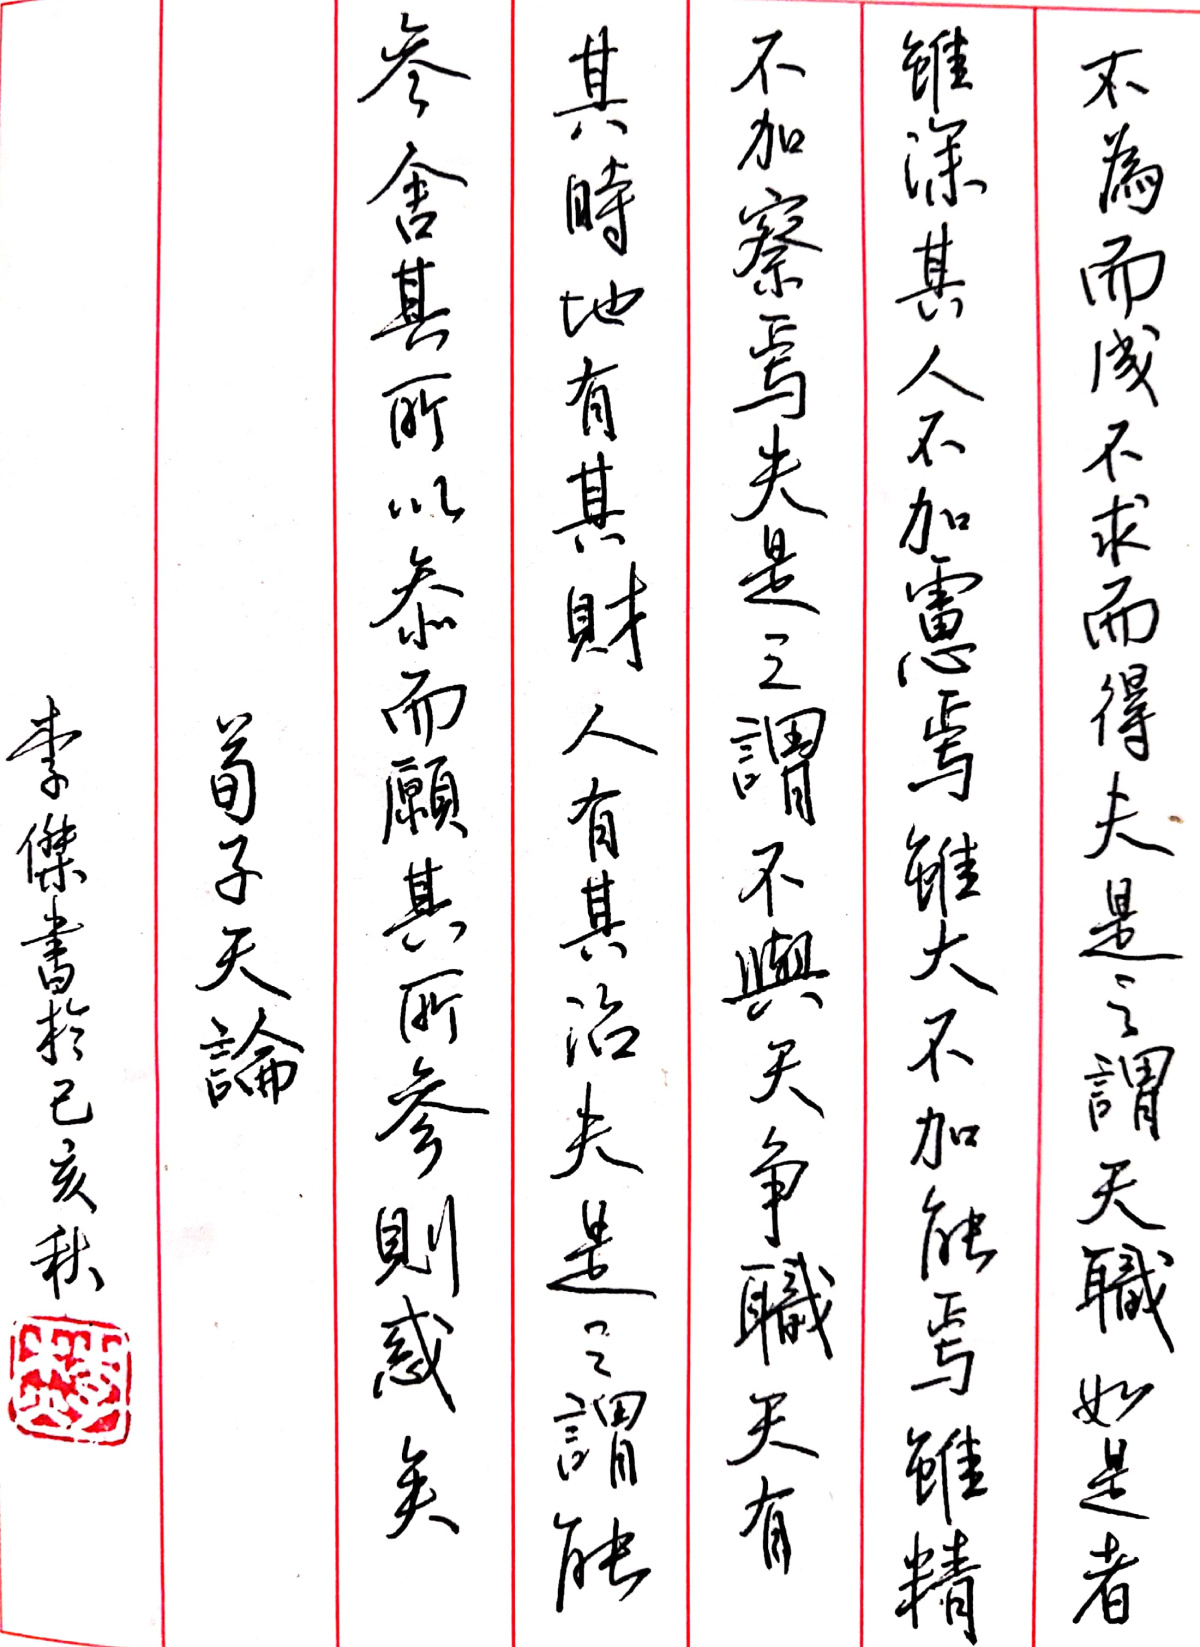 不為而成不求而得夫是之謂天職如是者
雖深其人不加慮焉雖大不加能焉雖精
不加察焉夫是之謂不與天争職天有
其時地有其財人有其治夫是之謂能
参舍其所以參而願其所参則惑矣
荀子天論
李傑書於己亥秋